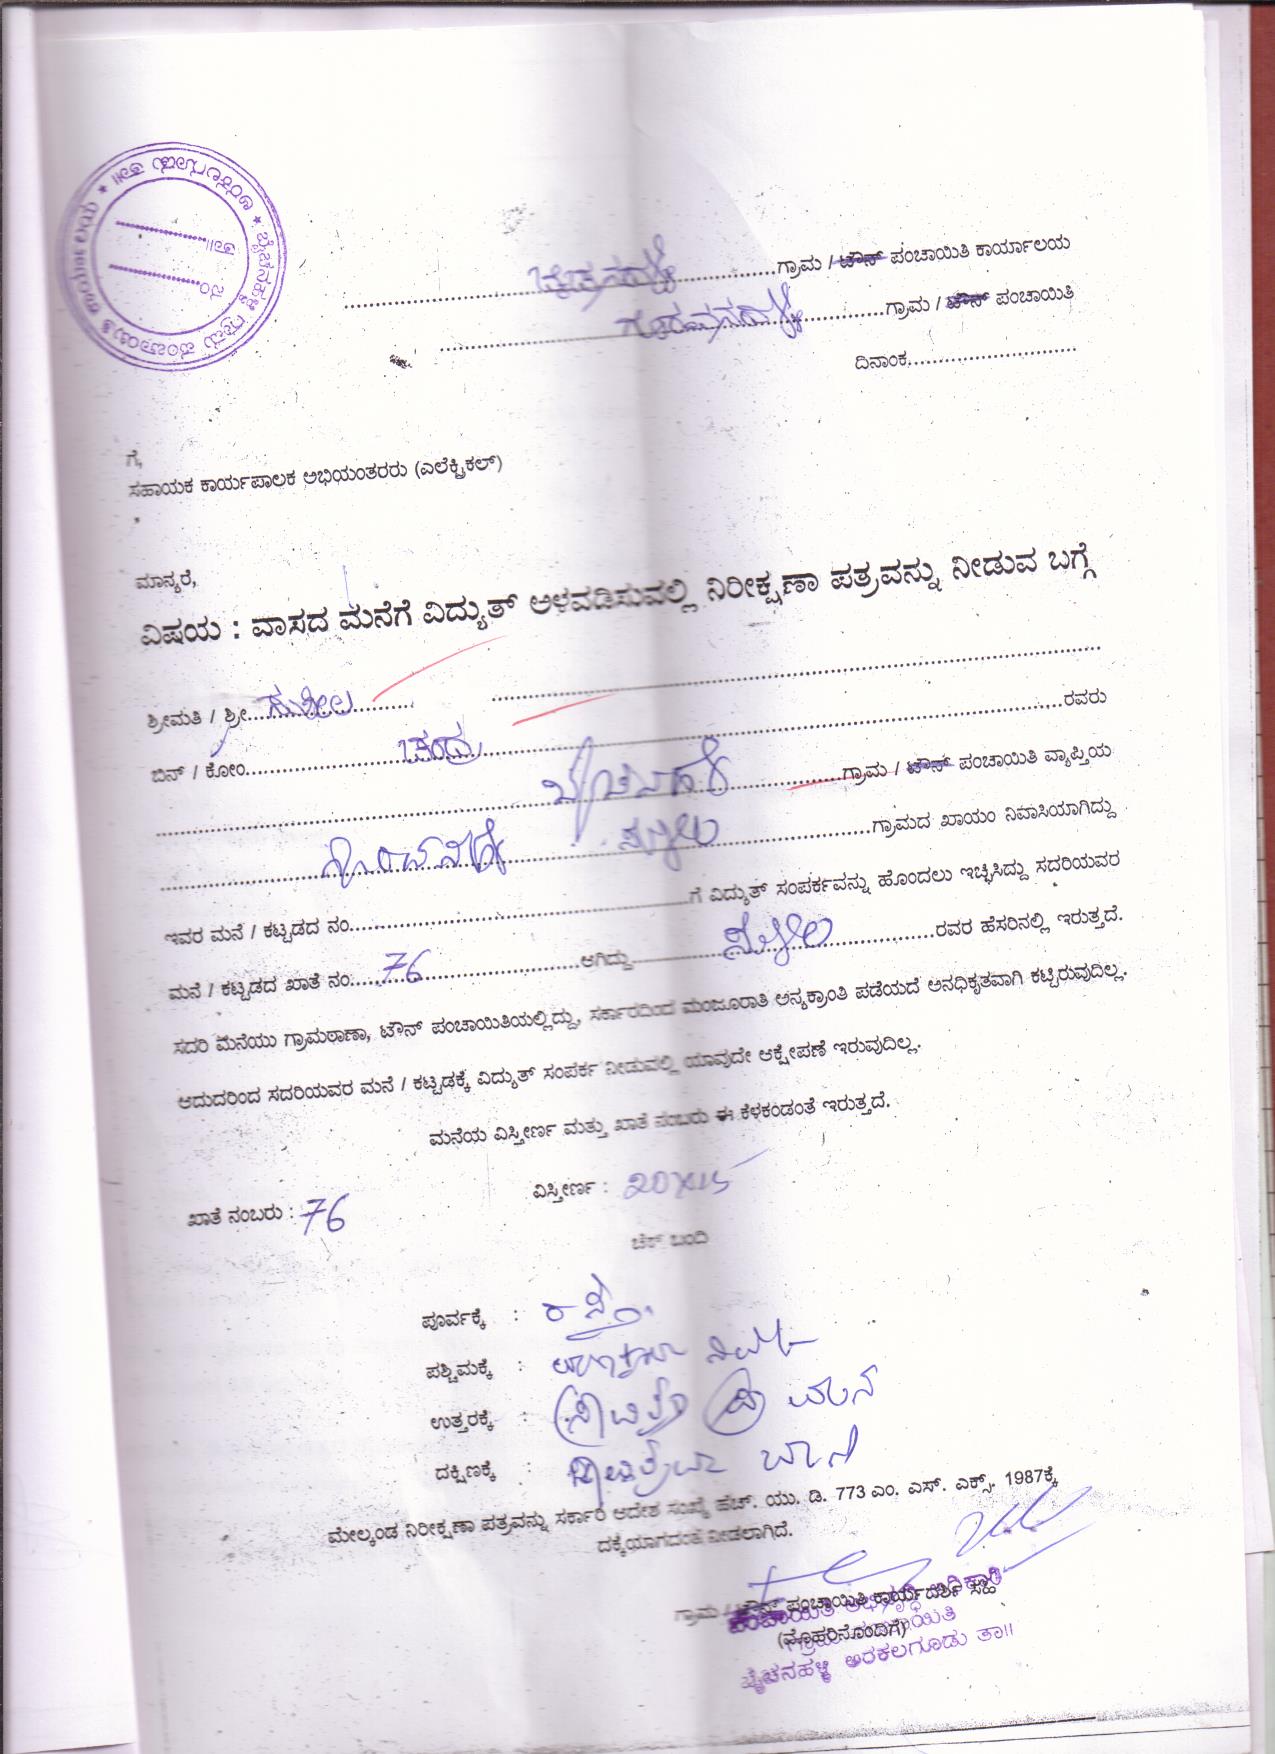 ಬೈಚನಹಳ್ಳಿ ಗ್ರಾಮ ಪಂಚಾಯಿತಿ ಕಾರ್ಯಾಲಯ * ಅರಕಲಗೂಡು ತಾ॥ *
ನಂ..........
ತಾ॥..........
ಬೈಚನಹಳ್ಳಿ ..........ಗ್ರಾಮ / ಟೌನ್ ಪಂಚಾಯಿತಿ ಕಾರ್ಯಾಲಯ
..........ಗ್ರಾಮ / ಟೌನ್ ಪಂಚಾಯಿತಿ
ದಿನಾಂಕ..........
ಗೆ,
ಸಹಾಯಕ ಕಾರ್ಯಪಾಲಕ ಅಭಿಯಂತರರು (ಎಲೆಕ್ಟ್ರಿಕಲ್)
ಮಾನ್ಯರೆ,
ವಿಷಯ : ವಾಸದ ಮನೆಗೆ ವಿದ್ಯುತ್ ಅಳವಡಿಸುವಲ್ಲಿ ನಿರೀಕ್ಷಣಾ ಪತ್ರವನ್ನು ನೀಡುವ ಬಗ್ಗೆ
ಶ್ರೀಮತಿ / ಶ್ರೀ..........ಸುಶೀಲ
ಬಿನ್ / ಕೋಂ..........ಚಂದ್ರು..........ರವರು
..........ಗ್ರಾಮ / ಟೌನ್ ಪಂಚಾಯಿತಿ ವ್ಯಾಪ್ತಿಯ
..........ಗ್ರಾಮದ ಖಾಯಂ ನಿವಾಸಿಯಾಗಿದ್ದು
ಇವರ ಮನೆ / ಕಟ್ಟಡದ ನಂ..........ಗೆ ವಿದ್ಯುತ್ ಸಂಪರ್ಕವನ್ನು ಹೊಂದಲು ಇಚ್ಛಿಸಿದ್ದು ಸದರಿಯವರ
ಮನೆ / ಕಟ್ಟಡದ ಖಾತೆ ನಂ.....76..........ಆಗಿದ್ದು..........ರವರ ಹೆಸರಿನಲ್ಲಿ ಇರುತ್ತದೆ.
ಸದರಿ ಮನೆಯು ಗ್ರಾಮಠಾಣಾ, ಟೌನ್ ಪಂಚಾಯಿತಿಯಲ್ಲಿದ್ದು, ಸರ್ಕಾರದಿಂದ ಮಂಜೂರಾತಿ ಅನ್ಯಕ್ರಾಂತಿ ಪಡೆಯದೆ ಅನಧಿಕೃತವಾಗಿ ಕಟ್ಟಿರುವುದಿಲ್ಲ.
ಆದುದರಿಂದ ಸದರಿಯವರ ಮನೆ / ಕಟ್ಟಡಕ್ಕೆ ವಿದ್ಯುತ್ ಸಂಪರ್ಕ ನೀಡುವಲ್ಲಿ ಯಾವುದೇ ಆಕ್ಷೇಪಣೆ ಇರುವುದಿಲ್ಲ.
ಮನೆಯ ವಿಸ್ತೀರ್ಣ ಮತ್ತು ಖಾತೆ ನಂಬರು ಈ ಕೆಳಕಂಡಂತೆ ಇರುತ್ತದೆ.
ಖಾತೆ ನಂಬರು : 76 ವಿಸ್ತೀರ್ಣ : 20X15
ಚೆಕ್ ಬಂದಿ
ಪೂರ್ವಕ್ಕೆ : ರಸ್ತೆ
ಪಶ್ಚಿಮಕ್ಕೆ :
ಉತ್ತರಕ್ಕೆ : ಮನೆ
ದಕ್ಷಿಣಕ್ಕೆ :
ಮೇಲ್ಕಂಡ ನಿರೀಕ್ಷಣಾ ಪತ್ರವನ್ನು ಸರ್ಕಾರಿ ಆದೇಶ ಸಂಖ್ಯೆ ಹೆಚ್. ಯು. ಡಿ. 773 ಎಂ. ಎಸ್. ಎಕ್ಸ್. 1987ಕ್ಕೆ
ದಕ್ಕೆಯಾಗದಂತೆ ನೀಡಲಾಗಿದೆ.
ಗ್ರಾಮ / ಟೌನ್ ಪಂಚಾಯಿತಿ ಕಾರ್ಯದರ್ಶಿ ಸಹಿ
(ಮೊಹರಿನೊಂದಿಗೆ)
ಪಂಚಾಯಿತಿ ಅಭಿವೃದ್ಧಿ ಅಧಿಕಾರಿ
ಗ್ರಾಮ ಪಂಚಾಯಿತಿ
ಬೈಚನಹಳ್ಳಿ ಅರಕಲಗೂಡು ತಾ॥